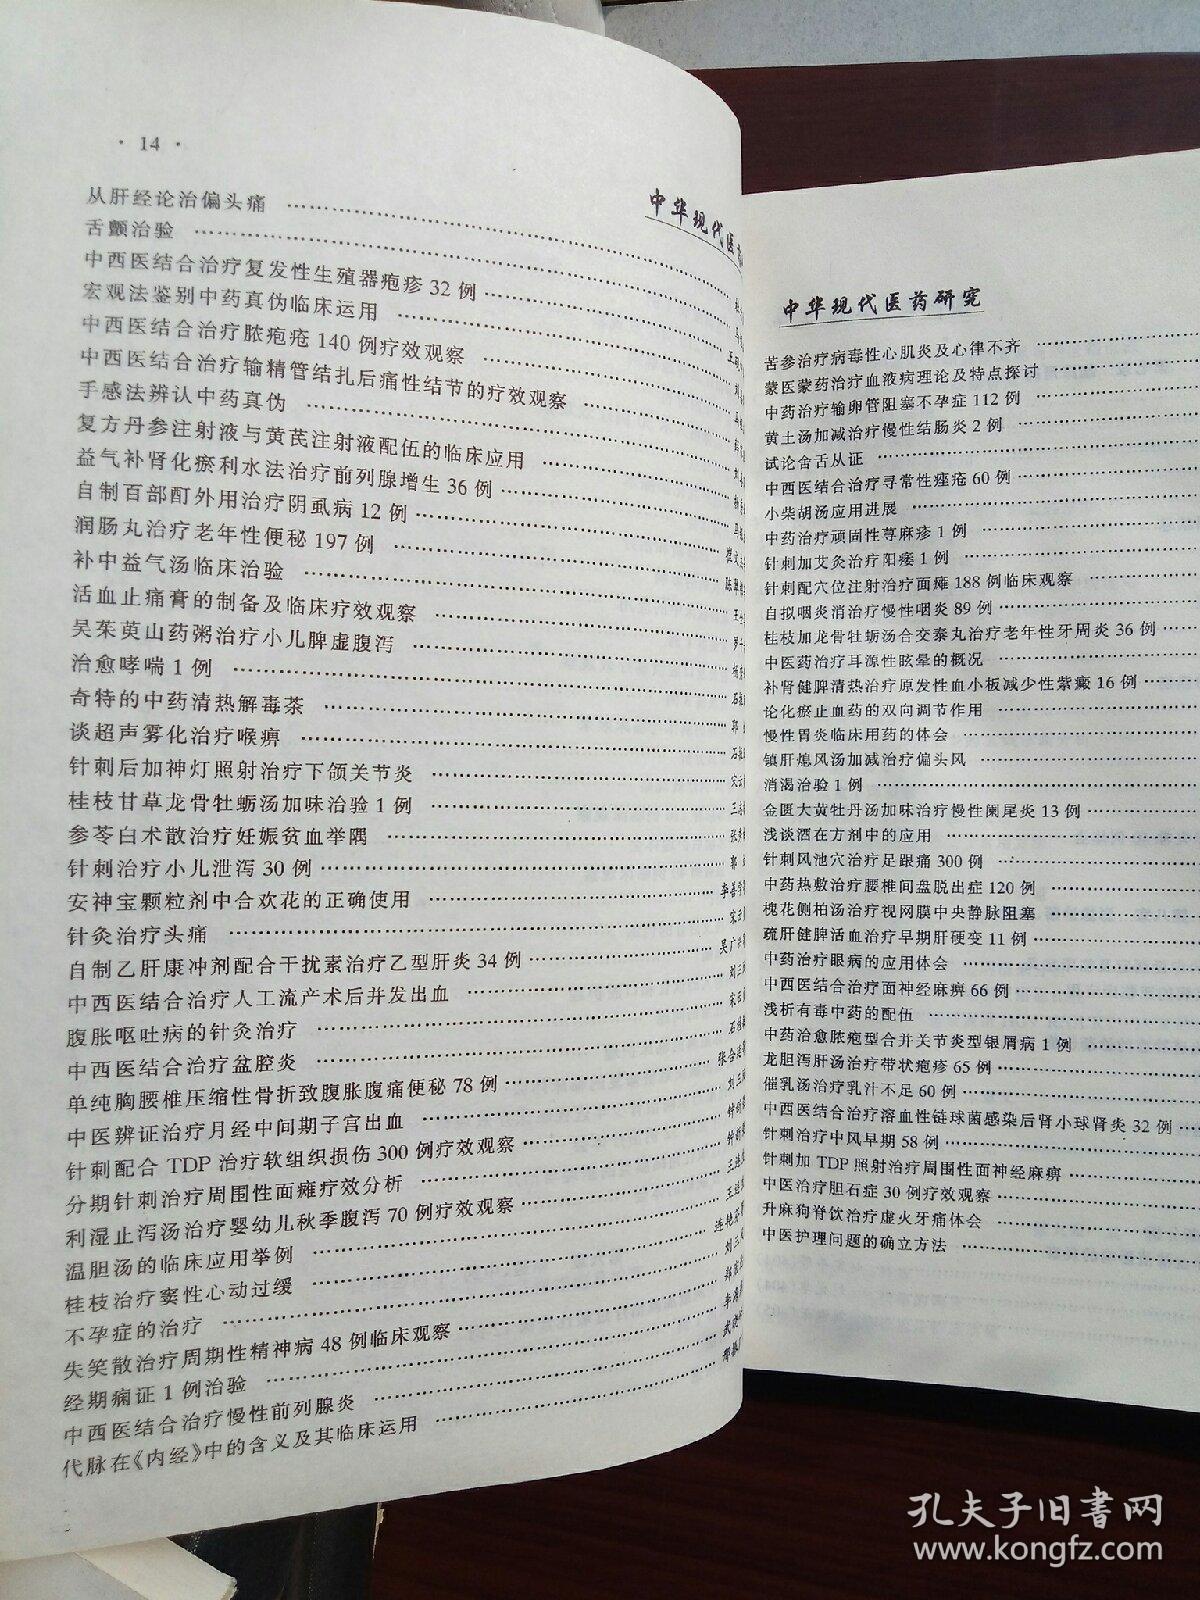 · 14 ·
中华现代医
从肝经论治偏头痛
舌颤治验
中西医结合治疗复发性生殖器疱疹 32 例
宏观法鉴别中药真伪临床运用
中西医结合治疗脓疱疮 140 例疗效观察
中西医结合治疗输精管结扎后痛性结节的疗效观察
手感法辨认中药真伪
复方丹参注射液与黄芪注射液配伍的临床应用
益气补肾化瘀利水法治疗前列腺增生 36 例
自制百部酊外用治疗阴虱病 12 例
润肠丸治疗老年性便秘 197 例
补中益气汤临床治验
活血止痛膏的制备及临床疗效观察
吴茱萸山药粥治疗小儿脾虚腹泻
治愈哮喘 1 例
奇特的中药清热解毒茶
谈超声雾化治疗喉痹
针刺后加神灯照射治疗下颌关节炎
桂枝甘草龙骨牡蛎汤加味治验 1 例
参苓白术散治疗妊娠贫血举隅
针刺治疗小儿泄泻 30 例
安神宝颗粒剂中合欢花的正确使用
针灸治疗头痛
自制乙肝康冲剂配合干扰素治疗乙型肝炎 34 例
中西医结合治疗人工流产术后并发出血
腹胀呕吐病的针灸治疗
中西医结合治疗盆腔炎
单纯胸腰椎压缩性骨折致腹胀腹痛便秘 78 例
中医辨证治疗月经中间期子宫出血
针刺配合 TDP 治疗软组织损伤 300 例疗效观察
分期针刺治疗周围性面瘫疗效分析
利湿止泻汤治疗婴幼儿秋季腹泻 70 例疗效观察
温胆汤的临床应用举例
桂枝治疗窦性心动过缓
不孕症的治疗
失笑散治疗周期性精神病 48 例临床观察
经期痫证 1 例治验
中西医结合治疗慢性前列腺炎
代脉在《内经》中的含义及其临床运用
中华现代医药研究
苦参治疗病毒性心肌炎及心律不齐
蒙医蒙药治疗血液病理论及特点探讨
中药治疗输卵管阻塞不孕症 112 例
黄土汤加减治疗慢性结肠炎 2 例
试论舍舌从证
中西医结合治疗寻常性痤疮 60 例
小柴胡汤应用进展
中药治疗顽固性荨麻疹 1 例
针刺加艾灸治疗阳痿 1 例
针刺配穴位注射治疗面瘫 188 例临床观察
自拟咽炎消治疗慢性咽炎 89 例
桂枝加龙骨牡蛎汤合交泰丸治疗老年性牙周炎 36 例
中医药治疗耳源性眩晕的概况
补肾健脾清热治疗原发性血小板减少性紫癜 16 例
论化瘀止血药的双向调节作用
慢性胃炎临床用药的体会
镇肝熄风汤加减治疗偏头风
消渴治验 1 例
金匮大黄牡丹汤加味治疗慢性阑尾炎 13 例
浅谈酒在方剂中的应用
针刺风池穴治疗足跟痛 300 例
中药热敷治疗腰椎间盘脱出症 120 例
槐花侧柏汤治疗视网膜中央静脉阻塞
疏肝健脾活血治疗早期肝硬变 11 例
中药治疗眼病的应用体会
中西医结合治疗面神经麻痹 66 例
浅析有毒中药的配伍
中药治愈脓疱型合并关节炎型银屑病 1 例
龙胆泻肝汤治疗带状疱疹 65 例
催乳汤治疗乳汁不足 60 例
中西医结合治疗溶血性链球菌感染后肾小球肾炎 32 例
针刺治疗中风早期 58 例
针刺加 TDP 照射治疗周围性面神经麻痹
中医治疗胆石症 30 例疗效观察
升麻狗脊饮治疗虚火牙痛体会
中医护理问题的确立方法
孔夫子旧书网
www.kongfz.com